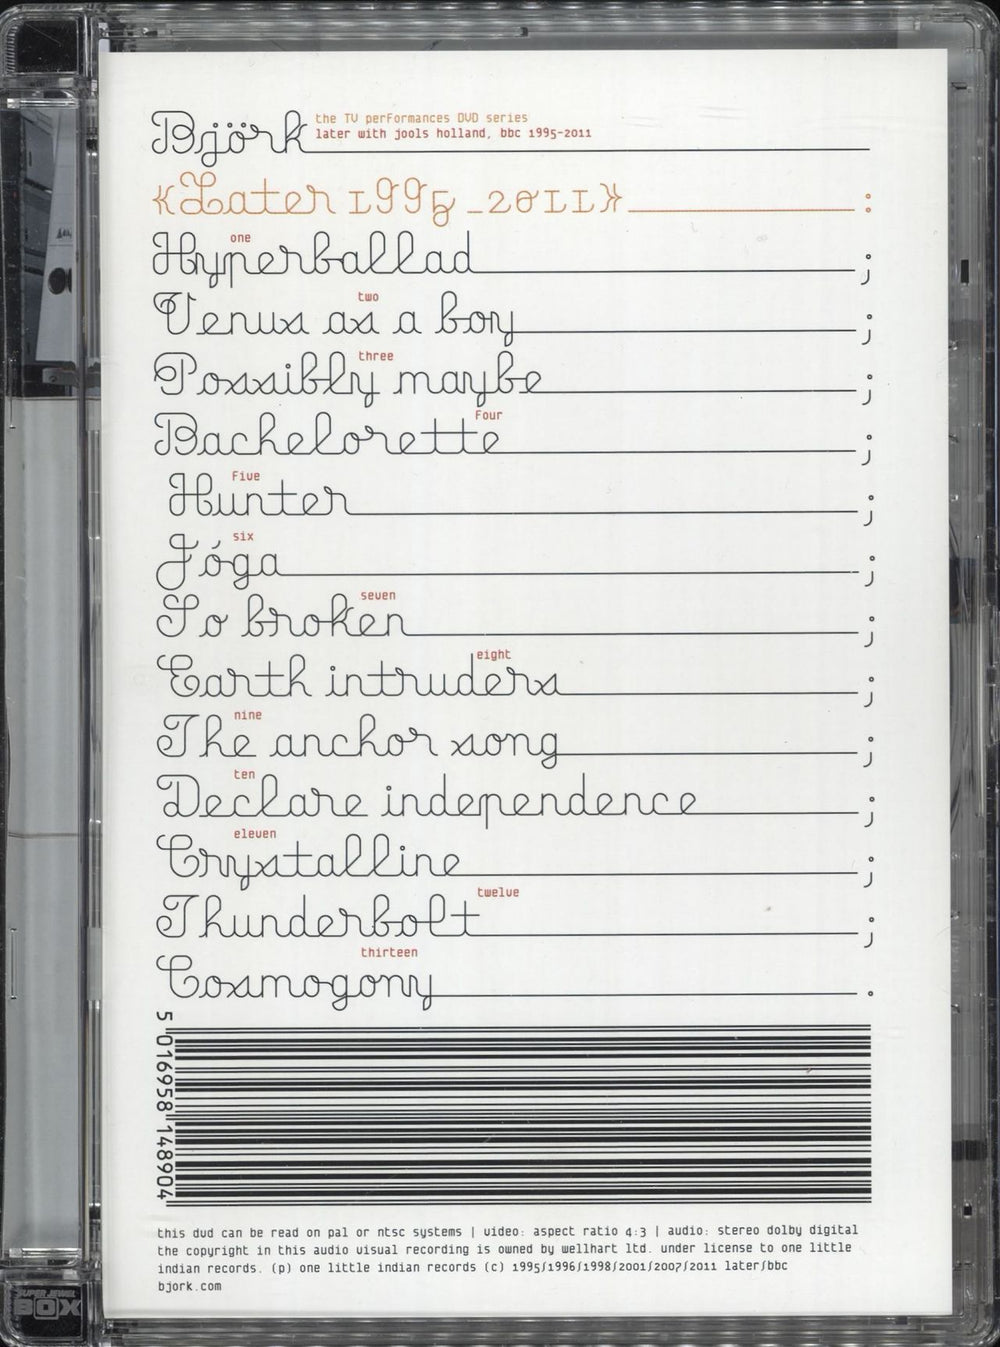 Björk
the TV performances DVD series
later with jools holland, bbc 1995-2011
«Later 1995_2011» :
one
Hyperballad ;
two
Venus as a boy ;
three
Possibly maybe ;
four
Bachelorette ;
five
Hunter ;
six
Jóga ;
seven
So broken ;
eight
Earth intruders ;
nine
The anchor song ;
ten
Declare independence ;
eleven
Crystalline ;
twelve
Thunderbolt ;
thirteen
Cosmogony .
5 016958 148904
this dvd can be read on pal or ntsc systems | video: aspect ratio 4:3 | audio: stereo dolby digital
the copyright in this audio visual recording is owned by wellhart ltd. under license to one little
indian records. (p) one little indian records (c) 1995/1996/1998/2001/2007/2011 later/bbc
bjork.com
SUPER JEWEL
BOX